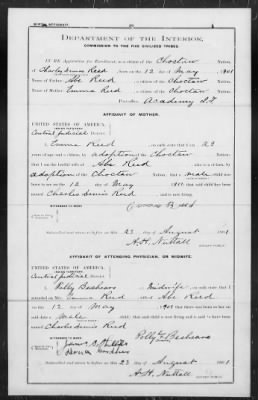 BIRTH AFFIDAVIT.
DEPARTMENT OF THE INTERIOR,
COMMISSION TO THE FIVE CIVILIZED TRIBES.
IN RE Application for Enrollment, as a citizen of the Choctaw Nation,
of Charles Reed, born on the 12 day of May, 1901
Name of Father: Abe Reed a citizen of the Choctaw Nation.
Name of Mother: Emma Reed a citizen of the Choctaw Nation.
Postoffice Academy I.T.
AFFIDAVIT OF MOTHER.
UNITED STATES OF AMERICA,
Central Judicial District.
I, Emma Reed, on oath state that I am
years of age and a citizen, by adoption, of the Choctaw
Nation; that I am the lawful wife of Abe Reed, who is a citizen, by
adoption, of the Choctaw Nation; that a male child was
born to me on the 12 day of May, 1901, that said child has been
named Charles Reed, and is now living.
Emma Reed
WITNESSES TO MARK:
Subscribed and sworn to before me this 23 day of August, 1901
A.H. Nuttall
NOTARY PUBLIC.
AFFIDAVIT OF ATTENDING PHYSICIAN, OR MIDWIFE.
UNITED STATES OF AMERICA,
Central Judicial District.
I, Polly Beshears, a Midwife, on oath state that I
attended on Mrs. Emma Reed, wife of Abe Reed
on the 12 day of May, 1901; that there was born to her on
said date a male child; that said child is now living and is said to have been
named Charles Reed
Polly Beshears
WITNESSES TO MARK:
Subscribed and sworn to before me this 23 day of August, 1901
A.H. Nuttall
NOTARY PUBLIC.